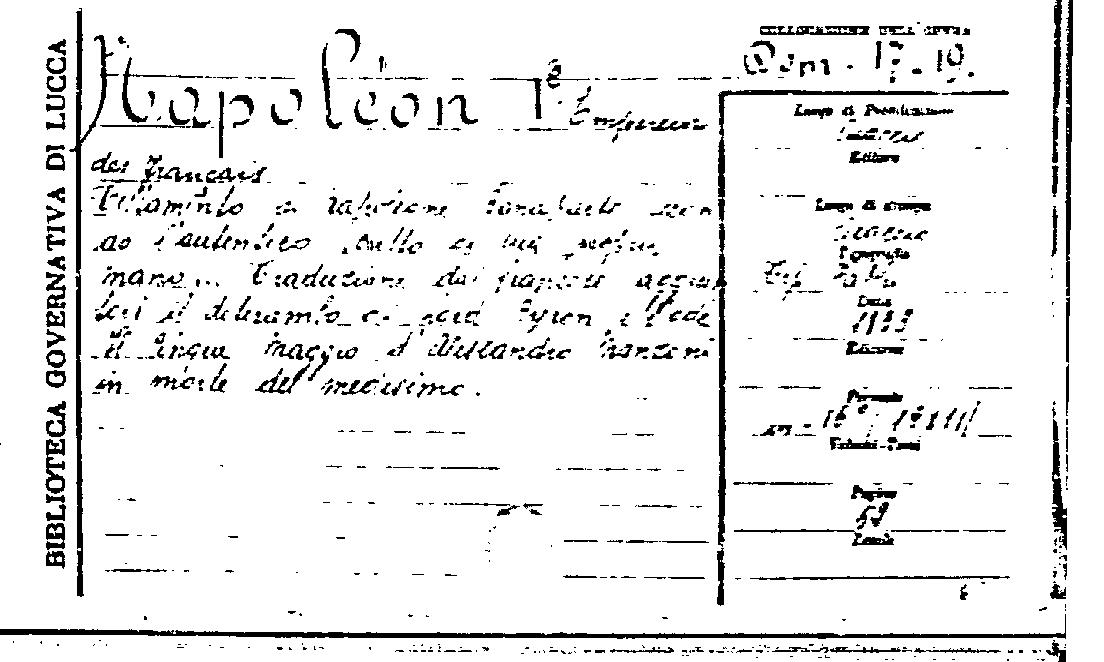 BIBLIOTECA GOVERNATIVA DI LUCCA
COLLOCAZIONE DELL'OPERA
Dom. 17-19.
Napoléon 1e. Empereur
des Français
Testamento di Napoleone Bonaparte secon
do l'autentico scritto di sua propria
mano... Traduzione dal francese aggiun
tovi il ditirambo di Lord Byron e l'ode
il Cinque Maggio d'Alessandro Manzoni
in morte del medesimo.
Luogo di Pubblicazione
Editore
Luogo di stampa
Tipografia
Tip.
Data
Edizione
Formato
in-16°
Volumi-Tomi
Pagine
Tavole